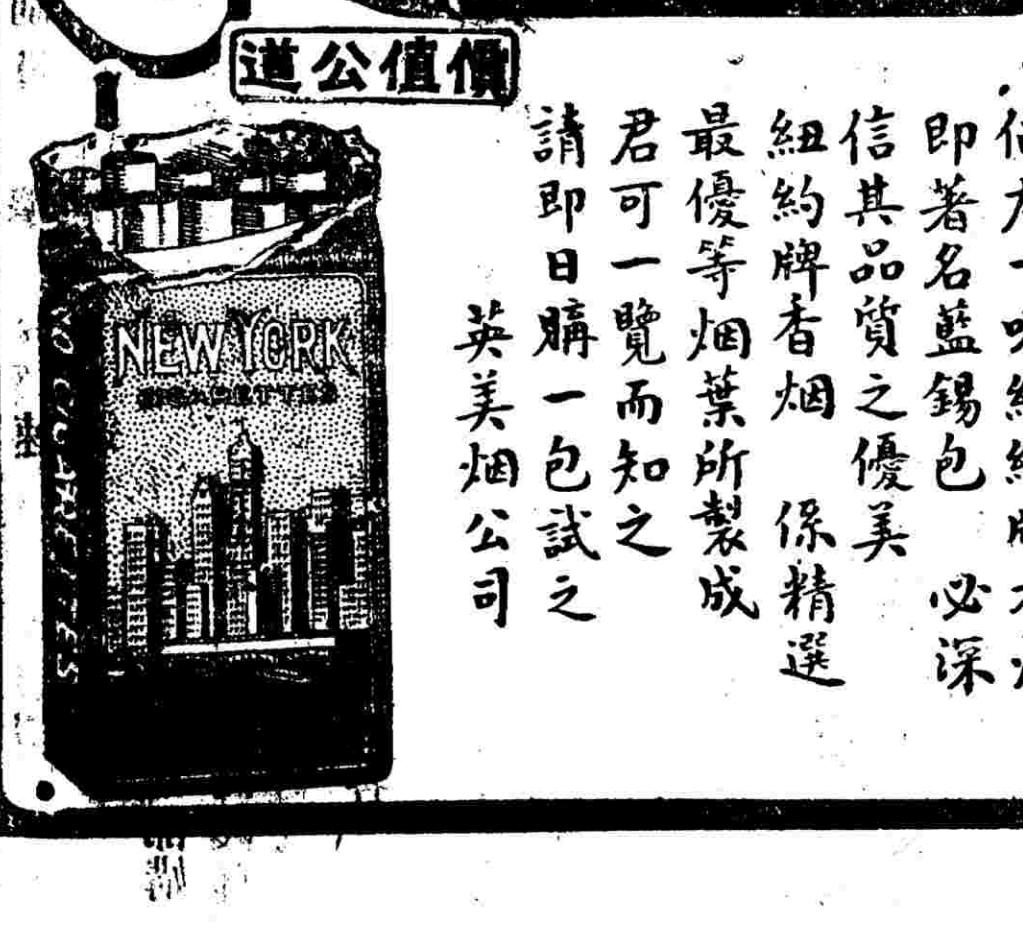 價值公道
即著名藍錫包 必深
信其品質之優美
紐約牌香烟 係精選
最優等烟葉所製成
君可一覽而知之
請即日購一包試之
英美烟公司
NEW YORK
CIGARETTES
CIGARETTES